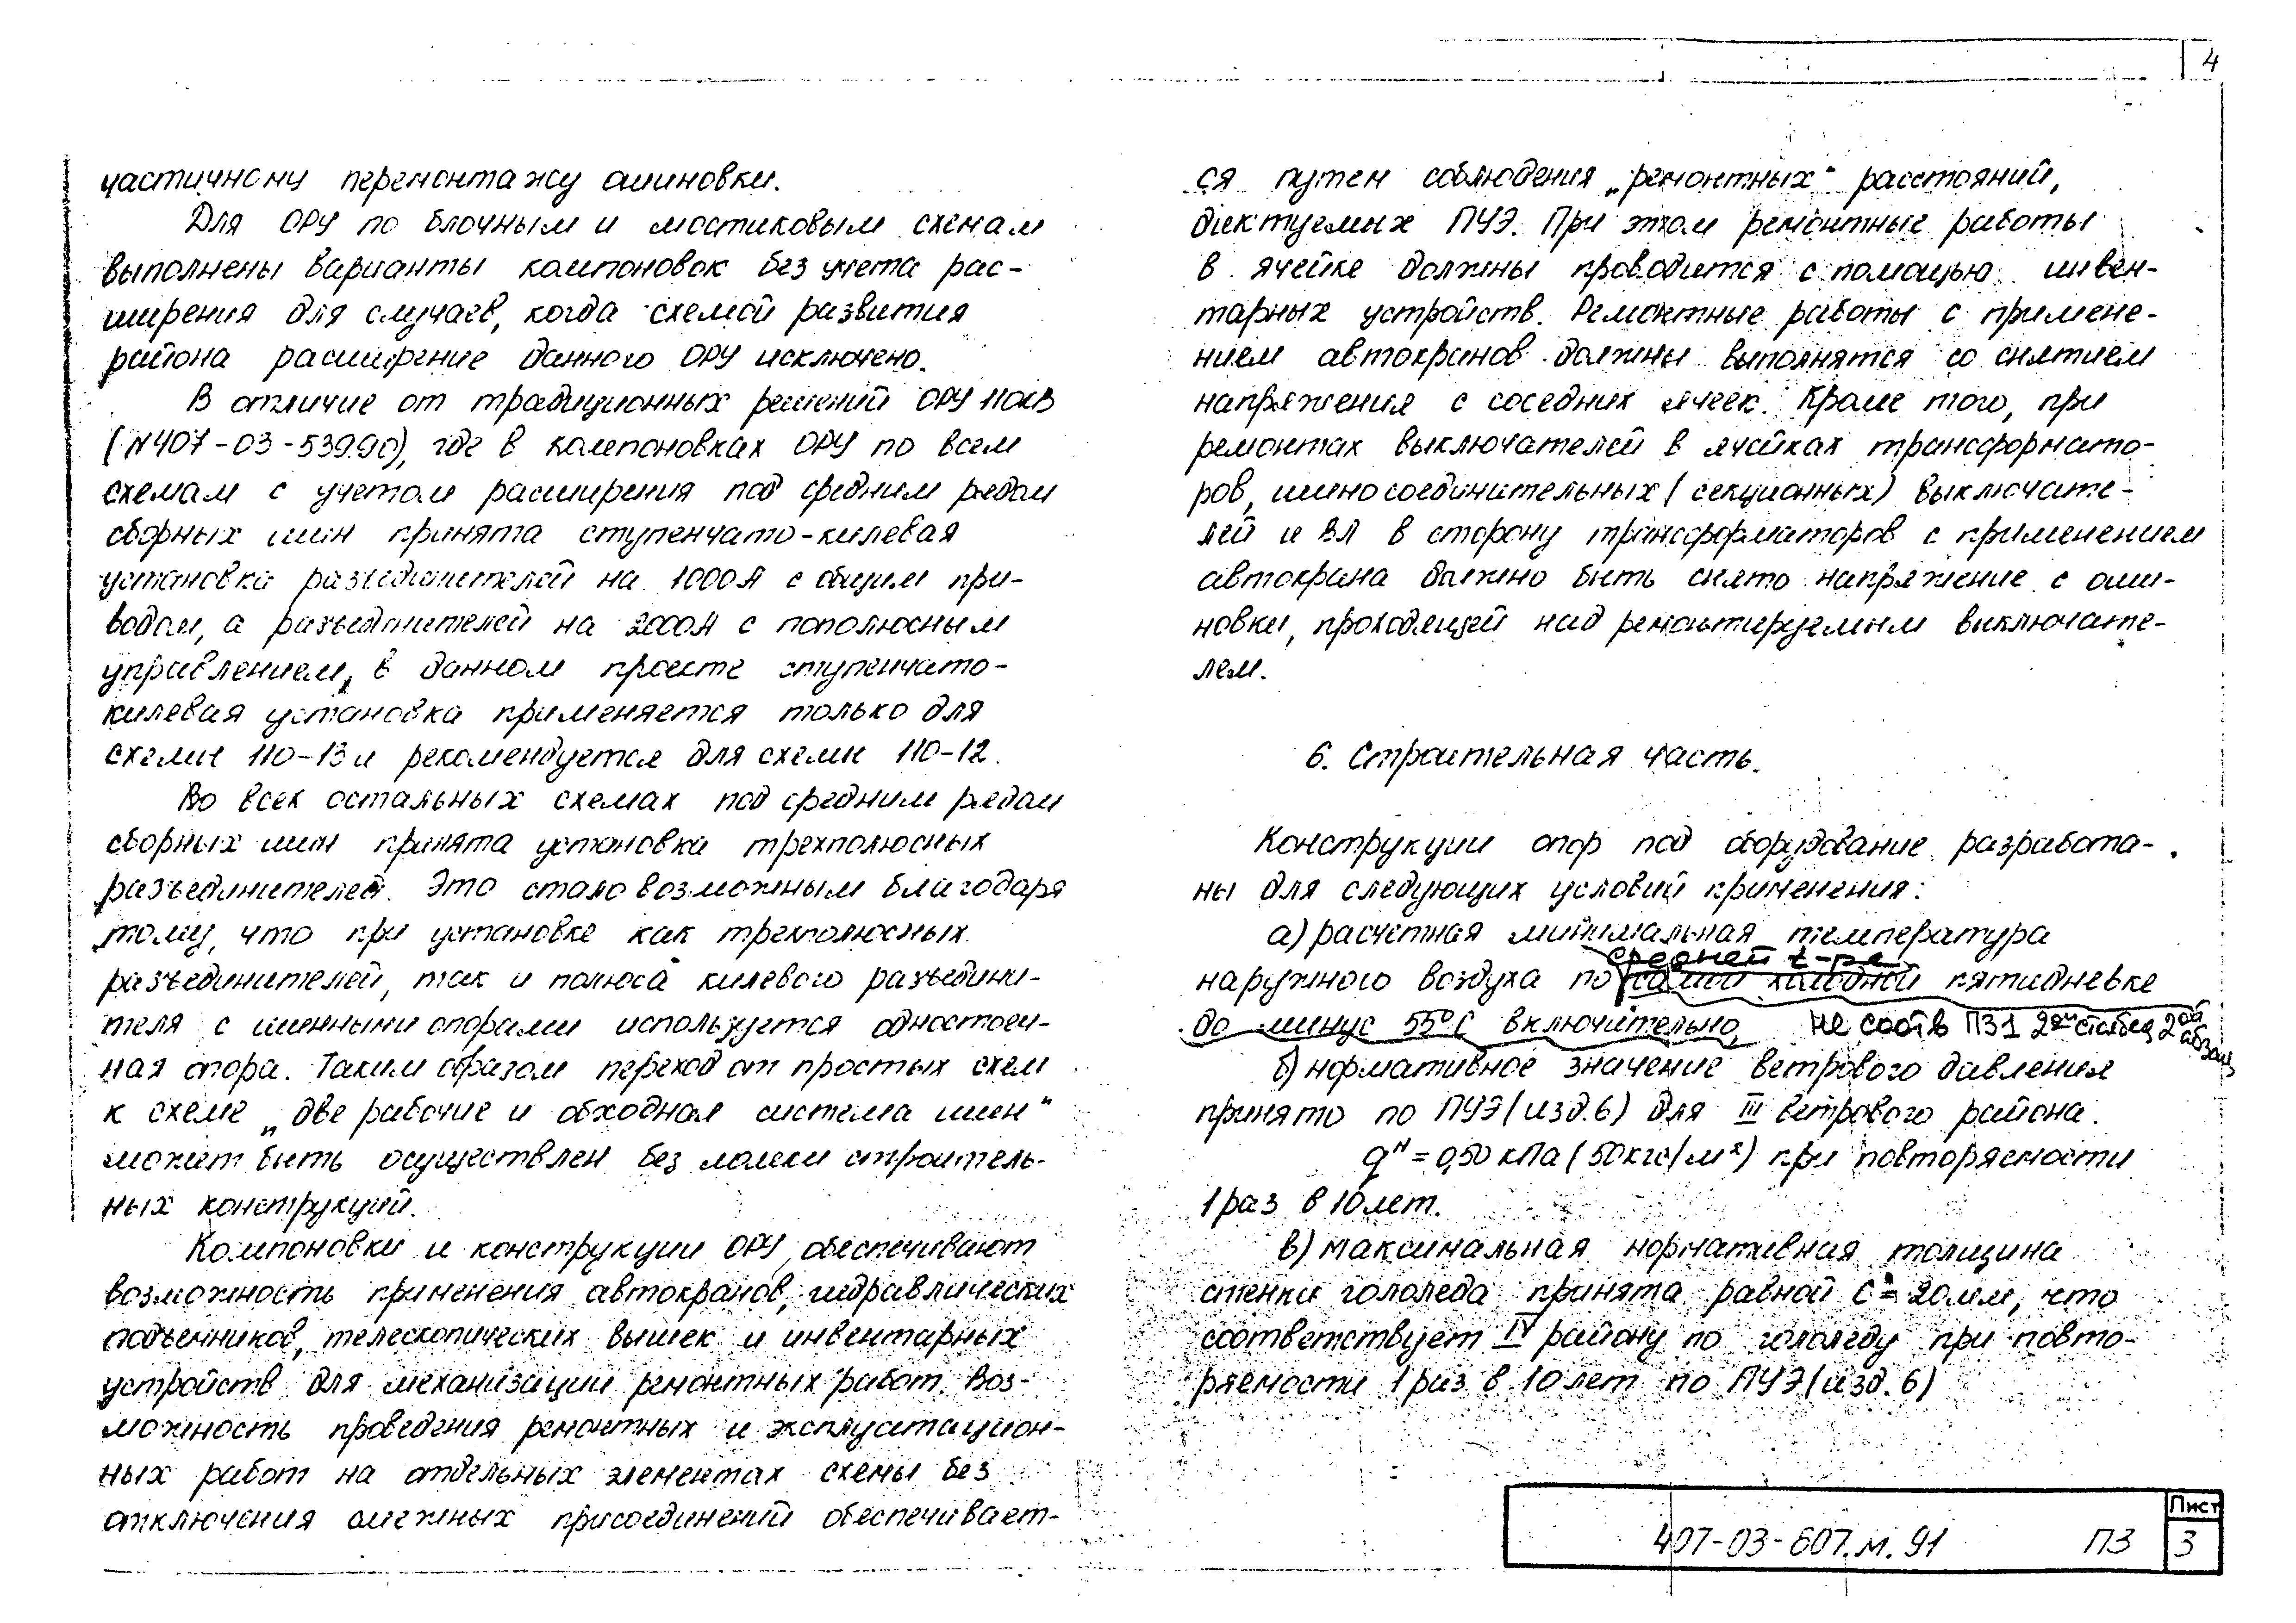 4
частичному перемонтажу ошиновки.
Для ОРУ по блочным и мостиковым схемам
выполнены варианты компоновок без учета рас-
ширения для случаев, когда схемой развития
района расширение данного ОРУ исключено.
В отличие от традиционных решений ОРУ 110кВ
(N407-03-539.90), где в компоновках ОРУ по всем
схемам с учетом расширения под средним рядом
сборных шин принята ступенчато-килевая
установка разъединителей на 1000А с общим при-
водом, а разъединителей на 2000А с пополюсным
управлением, в данном проекте ступенчато-
килевая установка применяется только для
схемы 110-13 и рекомендуется для схемы 110-12.
Во всех остальных схемах под средним рядом
сборных шин принята установка трехполюсных
разъединителей. Это стало возможным благодаря
тому, что при установке как трехполюсных
разъединителей, так и полюса килевого разъедини-
теля с шинными опорами используется одностоеч-
ная опора. Таким образом переход от простых схем
к схеме „две рабочие и обходная система шин"
может быть осуществлен без ломки строитель-
ных конструкций.
Компоновки и конструкции ОРУ обеспечивают
возможность применения автокранов, гидравлических
подъемников, телескопических вышек и инвентарных
устройств для механизации ремонтных работ. Воз-
можность проведения ремонтных и эксплуатацион-
ных работ на отдельных элементах схемы без
отключения смежных присоединений обеспечивает-
ся путем соблюдения „ремонтных" расстояний,
диктуемых ПУЭ. При этом ремонтные работы
в ячейке должны проводится с помощью инвен-
тарных устройств. Ремонтные работы с примене-
нием автокранов должны выполнятся со снятием
напряжения с соседних ячеек. Кроме того, при
ремонтах выключателей в ячейках трансформато-
ров, шиносоединительных (секционных) выключате-
лей и ВЛ в сторону трансформаторов с применением
автокрана должно быть снято напряжение с оши-
новки, проходящей над ремонтируемым выключате-
лем.
6. Строительная часть.
Конструкции опор под оборудование разработа-
ны для следующих условий применения:
а) расчетная минимальная температура
средней t-ре
наружного воздуха по самой холодной пятидневке
до минус 55°С включительно, не соотв ПЗ1 2ой столбец 2ой абзац
б) нормативное значение ветрового давления
принято по ПУЭ (изд. 6) для III ветрового района.
qᴴ = 0,50 кПа (50кгс/м²) при повторяемости
1 раз в 10 лет.
в) максимальная нормативная толщина
стенки гололеда принята равной С = 20мм, что
соответствует IV району по гололеду при повто-
ряемости 1 раз в 10 лет по ПУЭ (изд. 6)
407-03-607.м.91 ПЗ
Лист
3